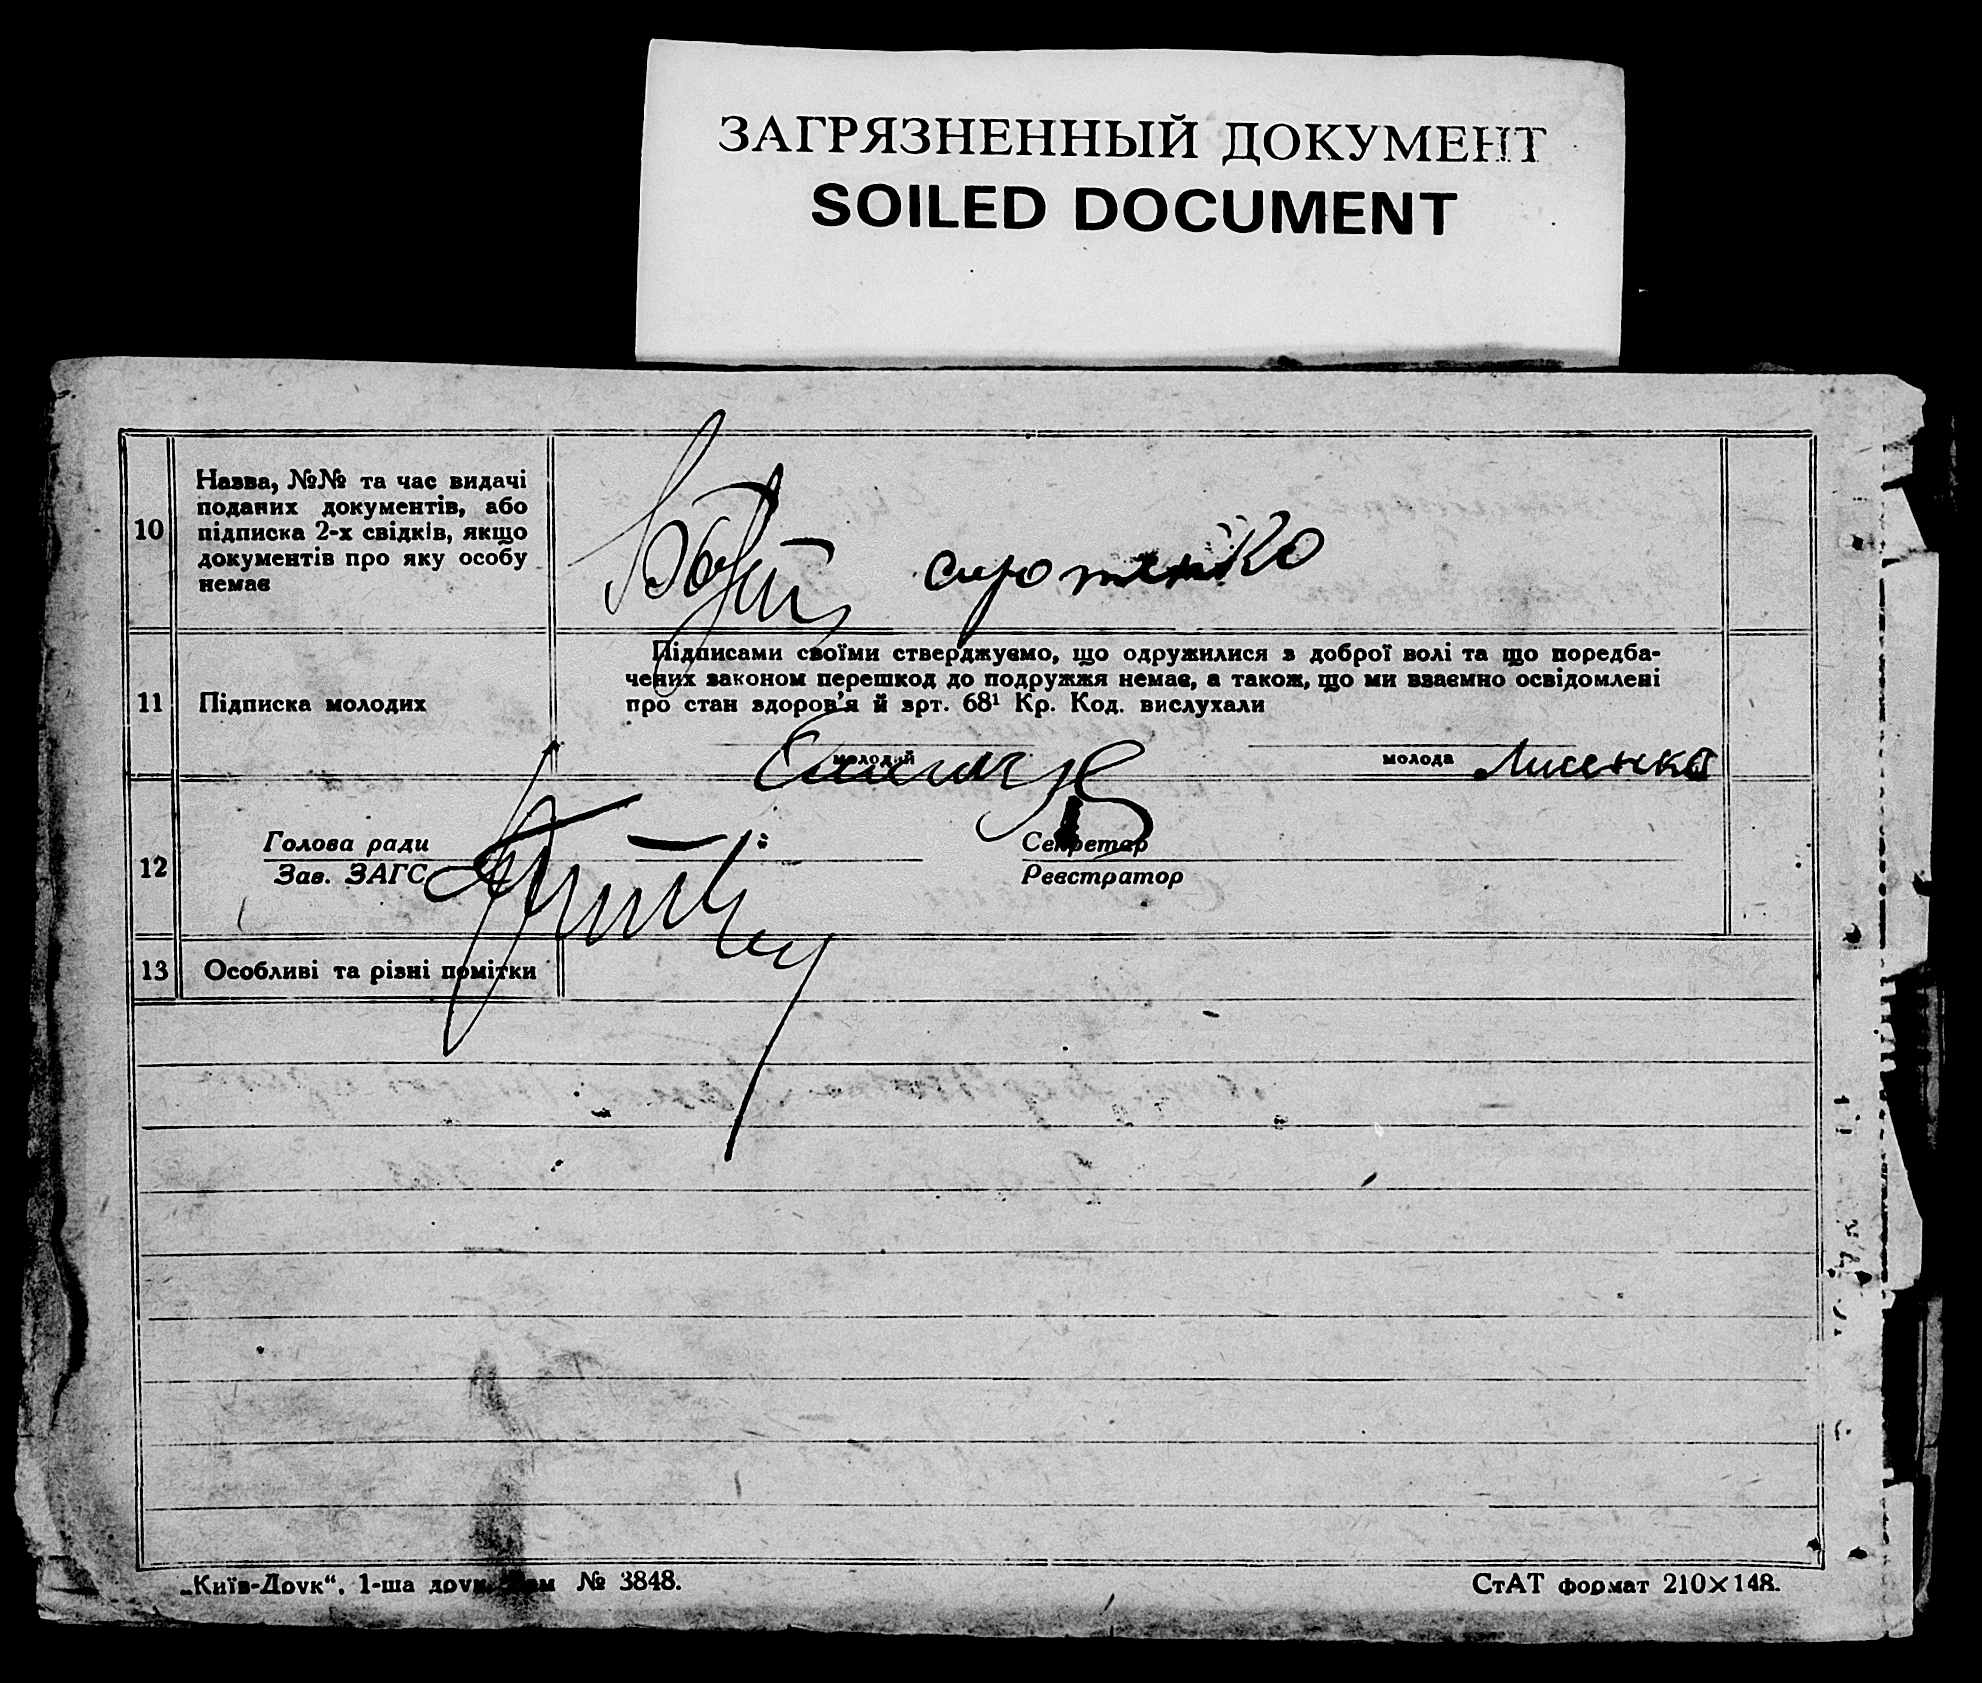 ЗАГРЯЗНЕННЫЙ ДОКУМЕНТ
SOILED DOCUMENT
10
Назва, №№ та час видачі
поданих документів, або
підписка 2-х свідків, якщо
документів про яку особу
немає
сиротенко
11
Підписка молодих
Підписами своїми стверджуємо, що одружилися з доброї волі та що поредба-
чених законом перешкод до подружжя немає, а також, що ми взаємно освідомлені
про стан здоров'я й зрт. 68¹ Кр. Код. вислухали
молодий
молода Лисенко
12
Голова ради
Зав. ЗАГС
Секретар
Реєстратор
13
Особливі та різні помітки
„Київ-Друк“. 1-ша друк. Зам № 3848.
СтАТ формат 210×148.